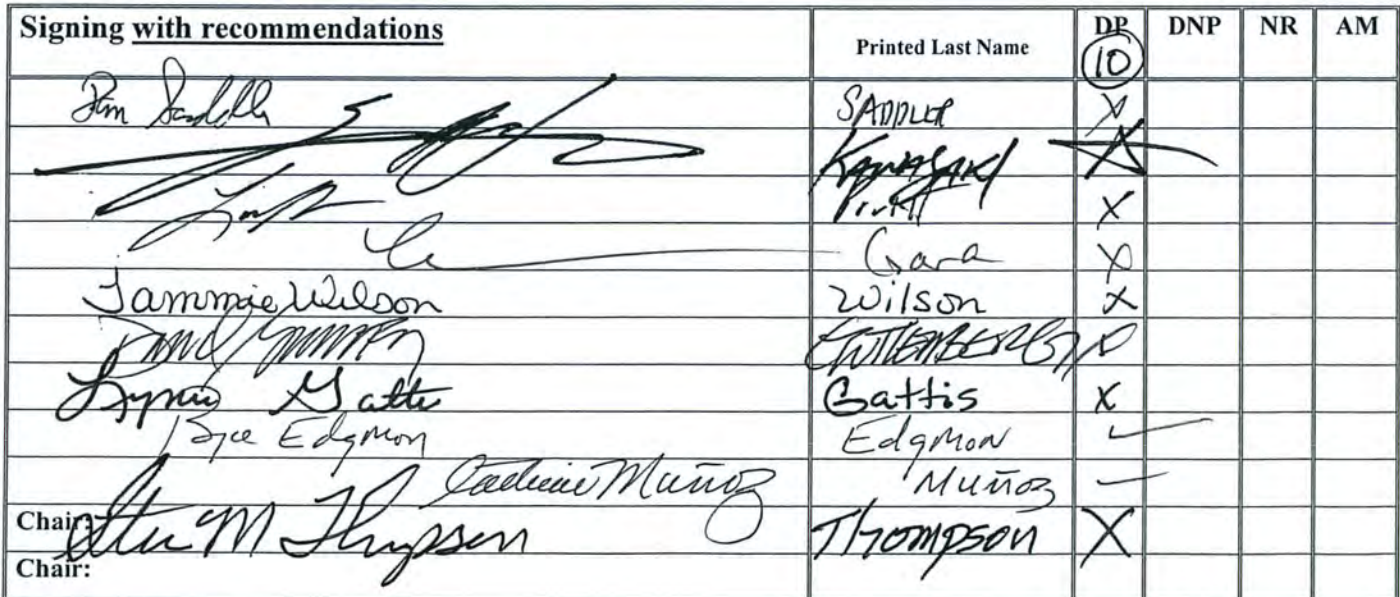 Signing with recommendations Printed Last Name DP DNP NR AM
10
Dan Saddler SADDLER X
KAWASAKI
Pruitt X
Gara X
Tammie Wilson Wilson X
David Guttenberg GUTTENBERG
Lynn Gattis Gattis X
Bryce Edgmon Edgmon ✓
Cathy Muñoz Muñoz
Chair: Steve M Thompson Thompson X
Chair: